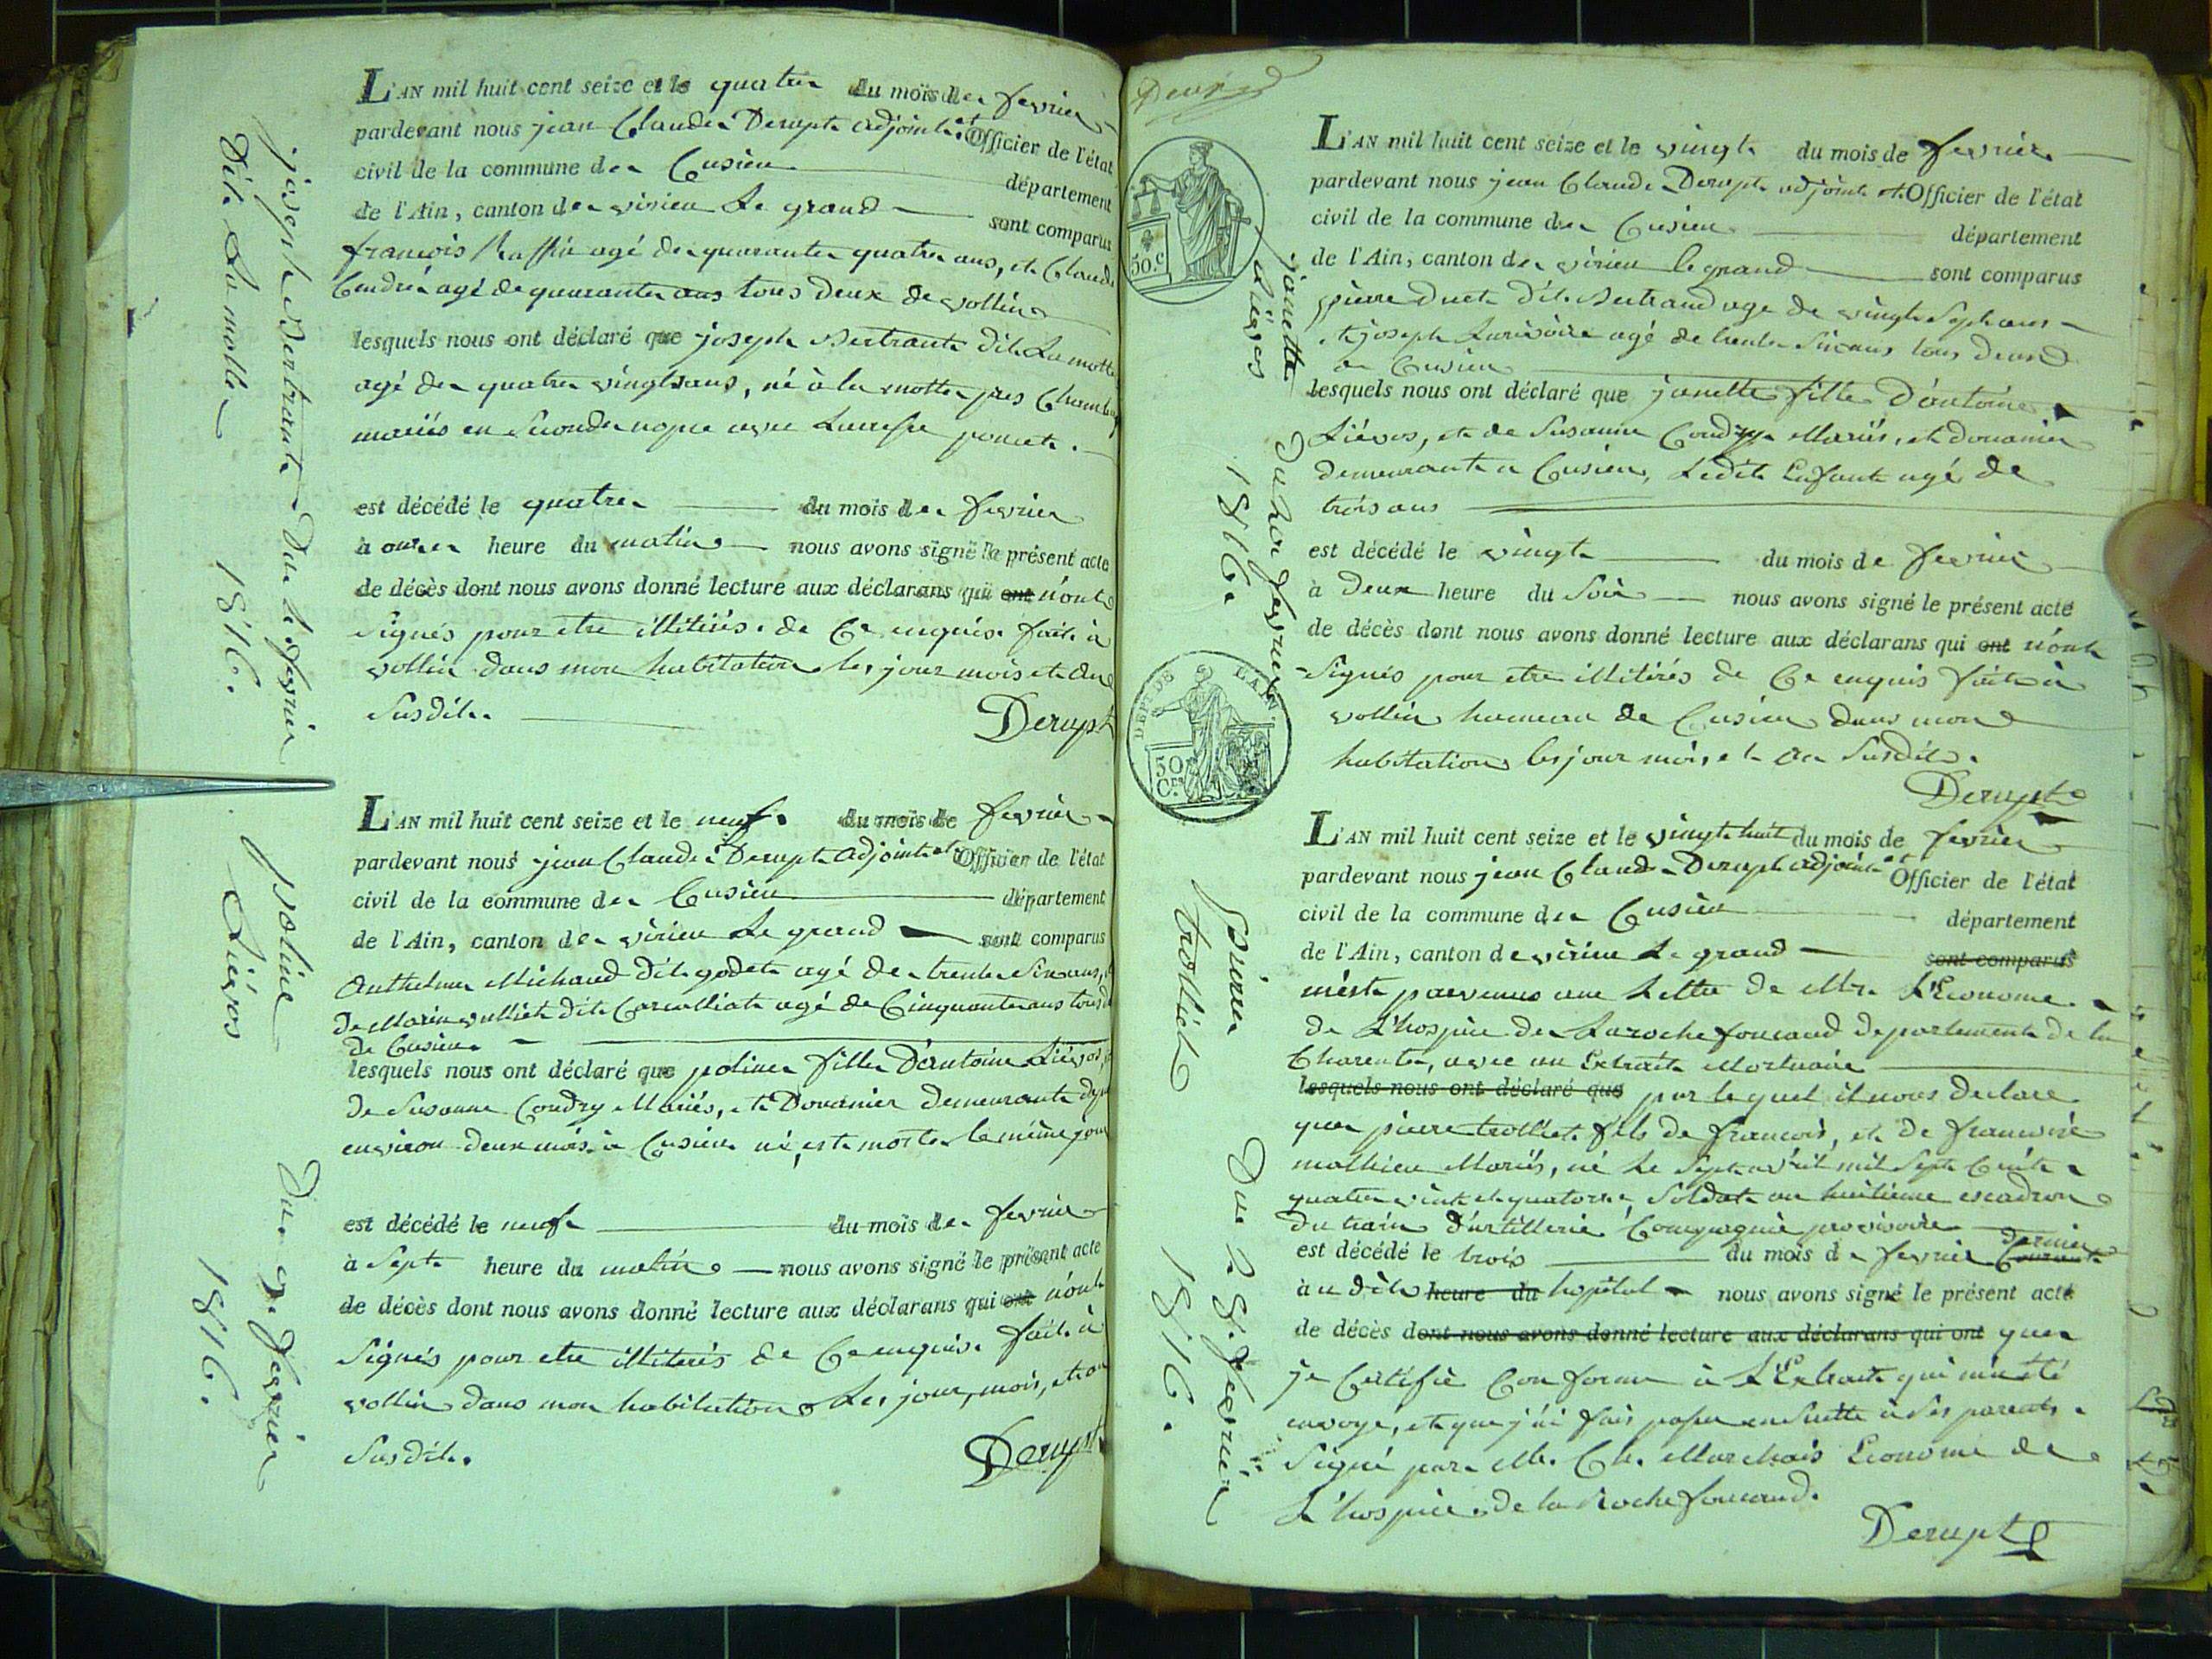 joseph Bertrante Du 4 fevrier
Dit Lamotte 1816.
L'AN mil huit cent seize et le quatre du mois de fevrier
pardevant nous jean Claude Derupt adjoint et Officier de l'état
civil de la commune de Cusieu département
de l'Ain, canton de virieu Le grand sont comparus
francois Ruffin agé de quarante quatre ans, et Claude
agé de quarante ans tous deux de vollin
lesquels nous ont déclaré que joseph Bertrante dit Lamotte
agé de quatre vingts ans, né à la motte pres
mariés en seconde nopce avec Lucresse poncet.
est décédé le quatre du mois de fevrier
à onze heure du matin nous avons signé le présent acte
de décès dont nous avons donné lecture aux déclarans qui ont n'ont
signés pour etre illitirés de ce enquis. fait à
vollin dans mon habitation les jour mois et an
susdit.
Derupt
poline Lièvos Du 9. fevrier
1816.
L'AN mil huit cent seize et le neuf. du mois de fevrier
pardevant nous jean Claude Derupt adjoint et Officier de l'état
civil de la commune de Cusieu département
de l'Ain, canton de virieu Le grand sont comparus
Anthelme Michaud dit godet agé de trente six ans, et
de Marin vulliet dit agé de Cinquante ans tous d
de Cusieu
lesquels nous ont déclaré que poline fille D'antoine Lièvos, et
de Susanne Coudry Mariés, et Douanier demeurante
environ deux mois à Cusieu né, est morte le même jour
est décédé le neuf du mois de fevrier
à Sept heure du matin nous avons signé le présent acte
de décès dont nous avons donné lecture aux déclarans qui ont n'ont
Signés pour etre illiterés de Ce enquis. fait à
vollin dans mon habitation Les jour, mois, et an
Susdit.
Derupt
50.c
DEPT DE L'AIN.
50 Ces
janette Lièvos Du 20 fevrier
1816.
L'AN mil huit cent seize et le vingt du mois de fevrier
pardevant nous jean Claude Derupt adjoint et Officier de l'état
civil de la commune de Cusieu département
de l'Ain, canton de virieu le grand sont comparus
pierre Duet dit Bertrand age de vingt Sept ans
et joseph agé de trente Six ans tous deux
a Cusieu
lesquels nous ont déclaré que janette fille D'antoine
Lièvos, et de Susanne Coudry Mariés, et douanier
demeurante a Cusieu, Ledit Enfant agé de
trois ans
est décédé le vingt du mois de fevrier
à Deux heure du Soir nous avons signé le présent acte
de décès dont nous avons donné lecture aux déclarans qui ont n'ont
Signés pour etre illitirés de Ce enquis fait à
vollin hameau de Cusieu dans mon
habitation les jour mois et an Susdit.
Derupt
pierre trolliet Du 28. fevrier
1816.
L'AN mil huit cent seize et le vingt huit du mois de fevrier
pardevant nous jean Claude Derupt adjoint et Officier de l'état
civil de la commune de Cusieu département
de l'Ain, canton de virieu Le grand sont comparus
m'est parvenus une Lettre de Mr. L'Econome
de L'hospice de Larochefoucaud departement de la
Charente, avec un Extrait Mortuaire
lesquels nous ont déclaré que par lequel il nous declare
que pierre trolliet fils de francois, et de francoise
mathieu Mariés, né Le Sept avril mil Sept Cent
quatre vint et quatorze, Soldat au huitieme escadron
du train d'artillerie Compagnie provisoire dernier
est décédé le trois du mois de fevrier Courant
à u dit heure du hopital nous avons signé le présent acte
de décès dont nous avons donné lecture aux déclarans qui ont que
je Certifie Conforme à L'Extrait qui m'a été
envoyé, et que j'ai fais passer ensuitte à Ses parents.
Signé par Mr. Ch. Marchais Econome de
L'hospice de la Rochefoucaud.
Derupt